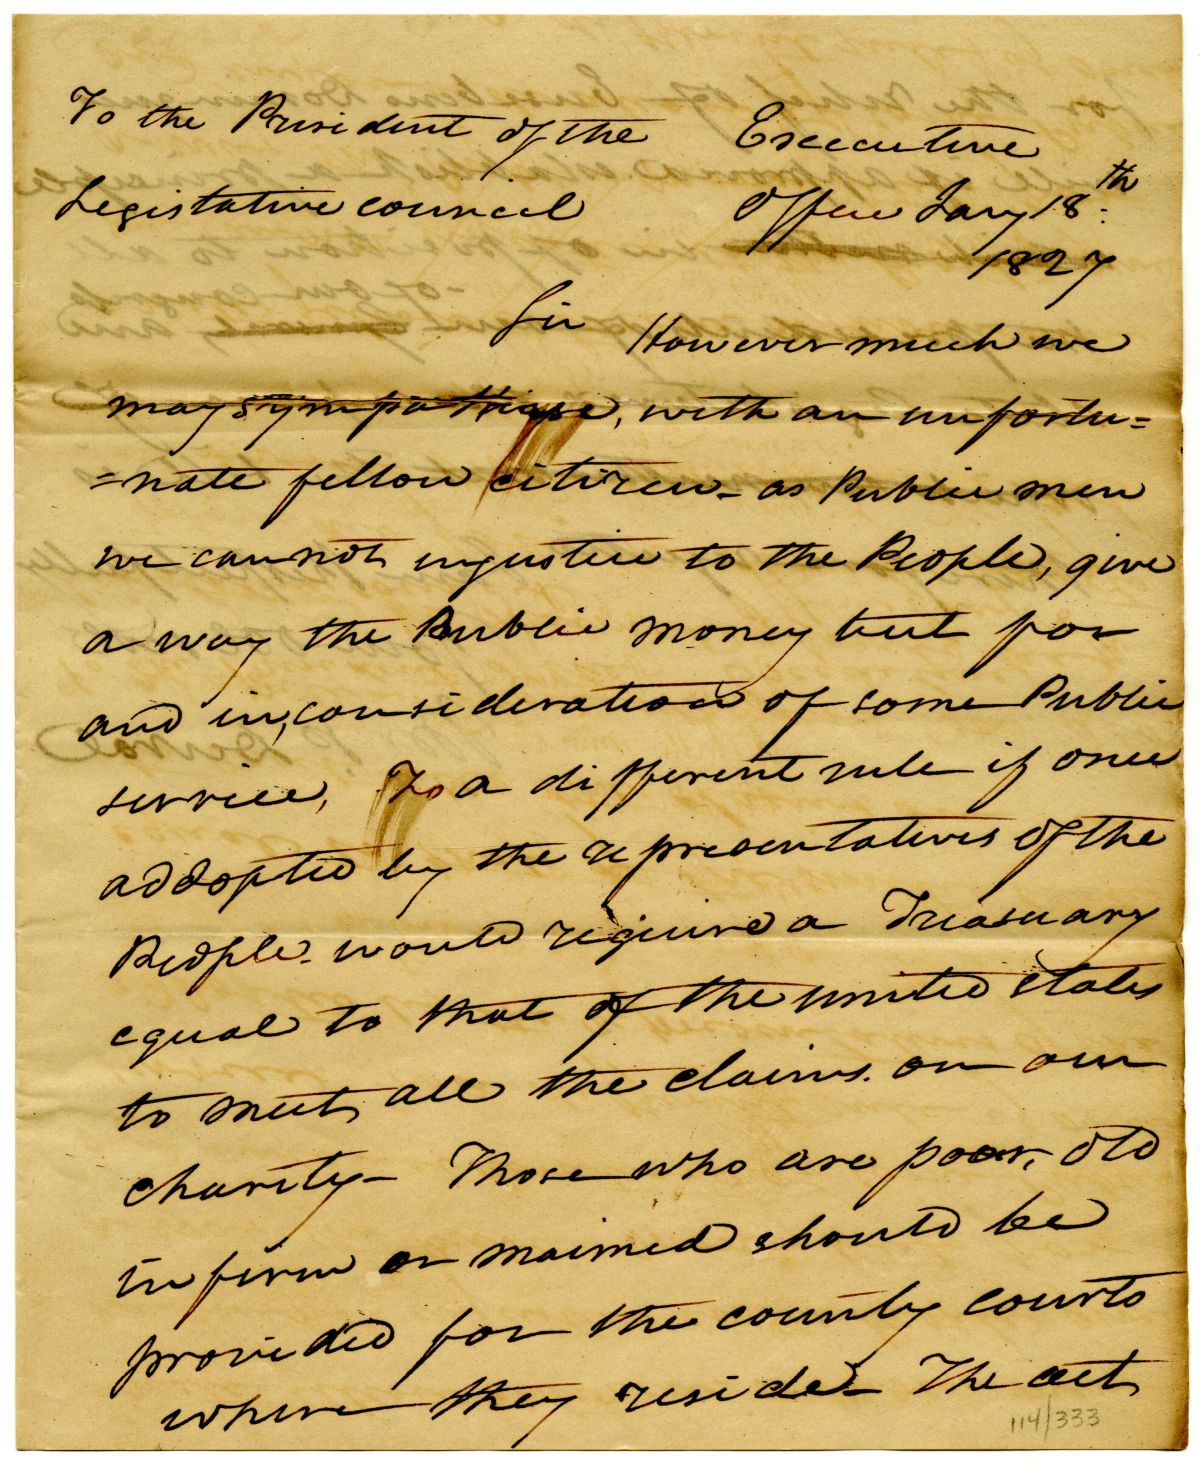 To the President of the
Legislative council
Executive
Office Jany 18th
1827
Sir However much we
may sympathise, with an unfortu=
=nate fellow citizen - as Public men
we can not injustice to the People, give
a way the Public money but for
and in, consideration of some Public
service, To a different rule if once
addopted by the representatives of the
People - would require a Treasuary
equal to that of the united states
to meet all the claims. on our
charity - Those who are poor, old
infirm or maimed should be
provided for the county courts
where they reside - The act
114/333